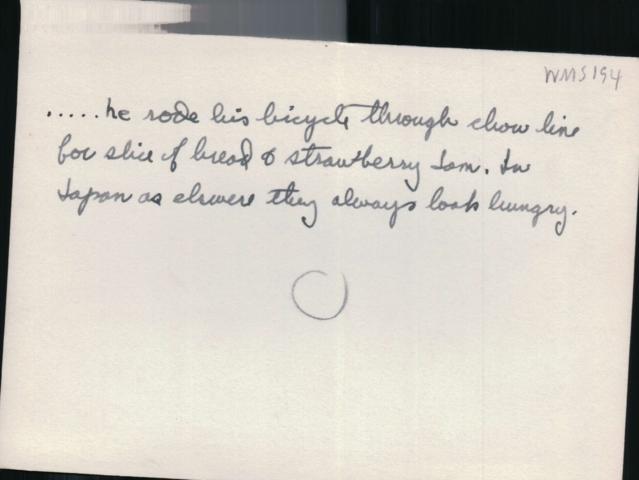 WMS194
.....he rode his bicycle through chow line
for slice of bread & strawberry Jam. In
Japan as elswere they always look hungry.